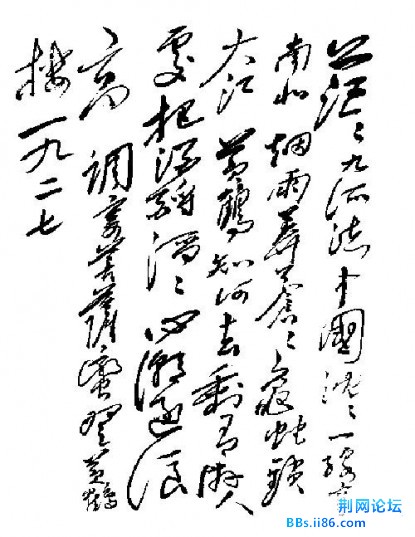 茫々九派流中國沉々一線穿
南北烟雨莽蒼々龜蛇鎖
大江黃鶴知何去剩有游人
處把酒酹滔々心潮逐浪
高調寄菩薩蠻登黃鶴
樓一九二七
荆网论坛
BBs.ii86.com